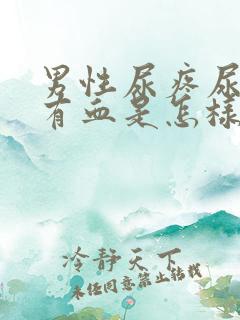 男性尿疼尿
有血是怎样
冷静天下
未经同意禁止转载